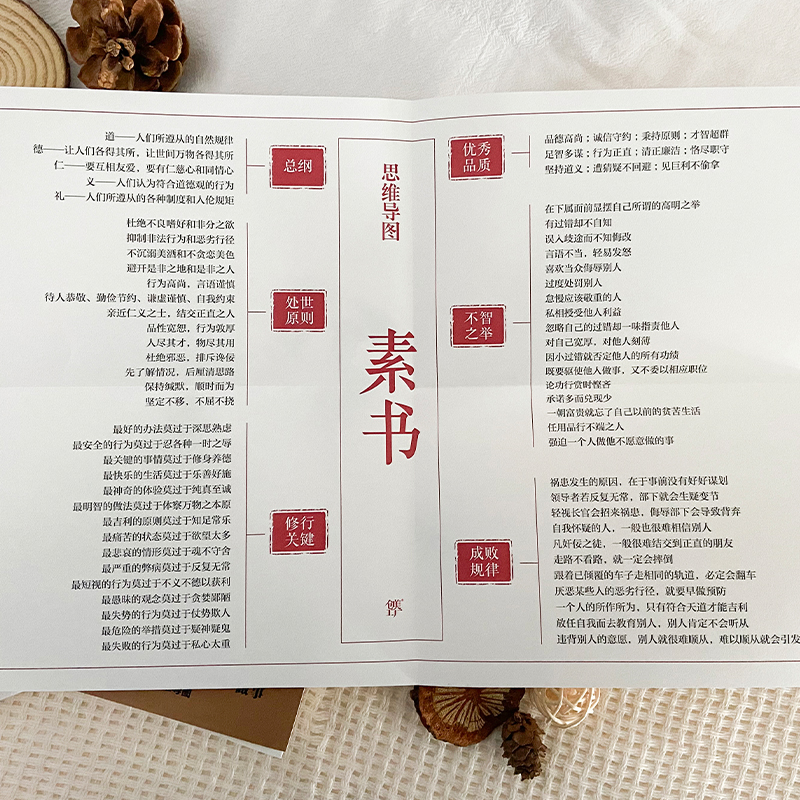 思维导图
素书
总纲
道——人们所遵从的自然规律
德——让人们各得其所，让世间万物各得其所
仁——要互相友爱，要有仁慈心和同情心
义——人们认为符合道德观的行为
礼——人们所遵从的各种制度和人伦规矩
处世
原则
杜绝不良嗜好和非分之欲
抑制非法行为和恶劣行径
不沉溺美酒和不贪恋美色
避开是非之地和是非之人
行为高尚，言语谨慎
待人恭敬、勤俭节约、谦虚谨慎、自我约束
亲近仁义之士，结交正直之人
品性宽恕，行为敦厚
人尽其才，物尽其用
杜绝邪恶，排斥谗佞
先了解情况，后厘清思路
保持缄默，顺时而为
坚定不移，不屈不挠
修行
关键
最好的办法莫过于深思熟虑
最安全的行为莫过于忍各种一时之辱
最关键的事情莫过于修身养德
最快乐的生活莫过于乐善好施
最神奇的体验莫过于纯真至诚
最明智的做法莫过于体察万物之本原
最吉利的原则莫过于知足常乐
最痛苦的状态莫过于欲望太多
最悲哀的情形莫过于魂不守舍
最严重的弊病莫过于反复无常
最短视的行为莫过于不义不德以获利
最愚昧的观念莫过于贪婪鄙陋
最失势的行为莫过于仗势欺人
最危险的举措莫过于疑神疑鬼
最失败的行为莫过于私心太重
优秀
品质
品德高尚；诚信守约；秉持原则；才智超群
足智多谋；行为正直；清正廉洁；恪尽职守
坚持道义；遭猜疑不回避；见巨利不偷拿
不智
之举
在下属面前显摆自己所谓的高明之举
有过错却不自知
误入歧途而不知悔改
言语不当，轻易发怒
喜欢当众侮辱别人
过度处罚别人
怠慢应该敬重的人
私相授受他人利益
忽略自己的过错却一味指责他人
对自己宽厚，对他人刻薄
因小过错就否定他人的所有功绩
既要驱使他人做事，又不委以相应职位
论功行赏时悭吝
承诺多而兑现少
一朝富贵就忘了自己以前的贫苦生活
任用品行不端之人
强迫一个人做他不愿意做的事
成败
规律
祸患发生的原因，在于事前没有好好谋划
领导者若反复无常，部下就会生疑变节
轻视长官会招来祸患，侮辱部下会导致背弃
自我怀疑的人，一般也很难相信别人
凡奸佞之徒，一般很难结交到正直的朋友
走路不看路，就一定会摔倒
跟着已倾覆的车子走相同的轨道，必定会翻车
厌恶某些人的恶劣行径，就要早做预防
一个人的所作所为，只有符合天道才能吉利
放任自我而去教育别人，别人肯定不会听从
违背别人的意愿，别人就很难顺从，难以顺从就会引发
创美
工厂